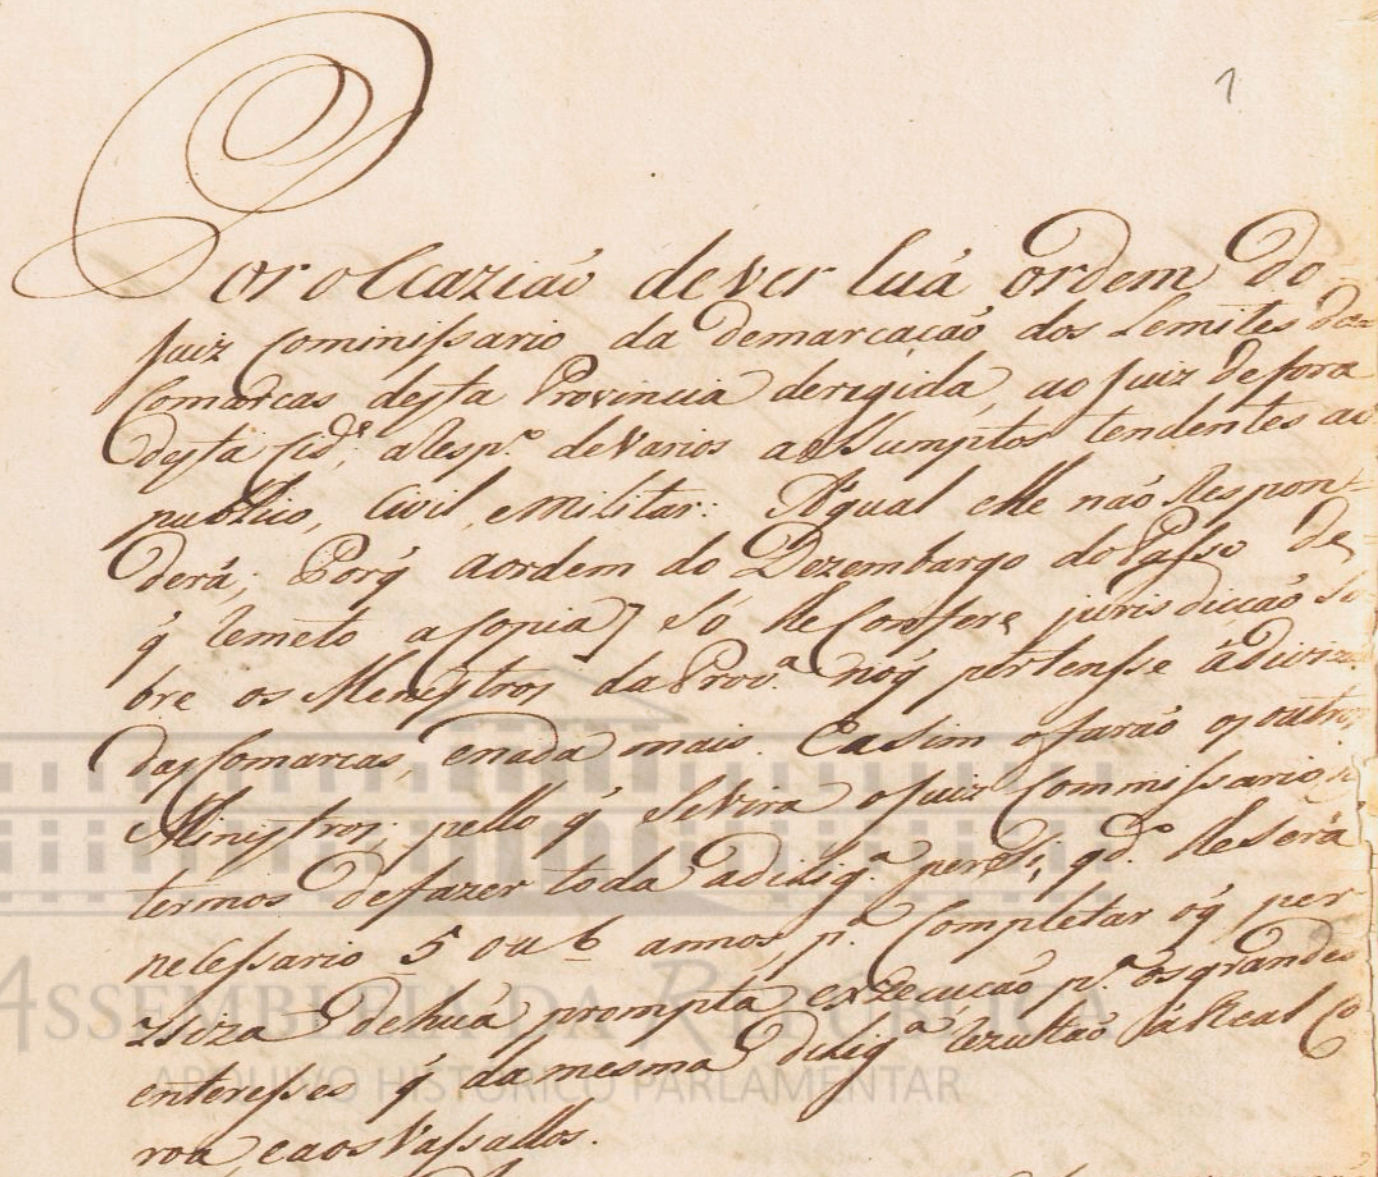 1
Por occazião de ver huá ordem do
Juiz Cominissario da demarcação dos Lemites das
Comarcas desta Provincia derigida, ao Juiz de fora
desta Cid.e, a resp.o de varios assumptos tendentes ao
publico, Civil, e Militar: A qual elle não respon-
derá; Porq̃ a ordem do Dezembargo do Passo de,
q̃ remeto a copia] só lhe Confere jurisdicção so
bre os Menistros da Prov.a no q̃ pertensse á divizão
das Comarcas, e nada mais. E asim o farão os outros
Ministros; pello q̃ se vira o Juiz Commissario, 
termos de fazer toda a dilig.a per si, q.do lhe será
necessario 5 ou 6 annos, p.a Completar o q̃ per
ziza de huá prompta exzecução p.a os grandes
enteresses q̃ da mesma dilig.a rezultão á Real Co
roa, e aos Vassallos.
ASSEMBLEIA DA REPÚBLICA
ARQUIVO HISTÓRICO PARLAMENTAR